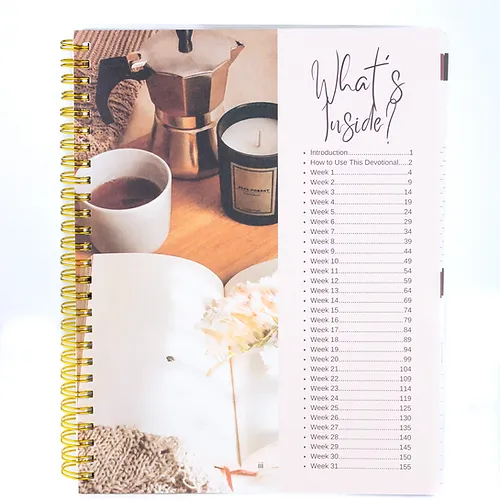 What's
Inside?
• Introduction..............................1
• How to Use This Devotional.....2
• Week 1....................................4
• Week 2....................................9
• Week 3..................................14
• Week 4..................................19
• Week 5..................................24
• Week 6..................................29
• Week 7..................................34
• Week 8..................................39
• Week 9..................................44
• Week 10................................49
• Week 11................................54
• Week 12................................59
• Week 13................................64
• Week 14................................69
• Week 15................................74
• Week 16................................79
• Week 17................................84
• Week 18................................89
• Week 19................................94
• Week 20................................99
• Week 21..............................104
• Week 22..............................109
• Week 23..............................114
• Week 24..............................119
• Week 25..............................125
• Week 26..............................130
• Week 27..............................135
• Week 28..............................140
• Week 29..............................145
• Week 30..............................150
• Week 31..............................155